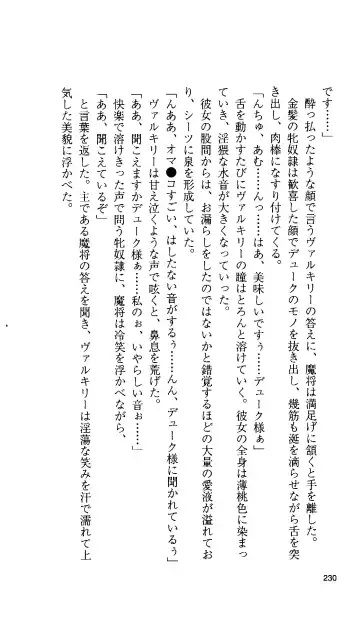 です……」
　酔っ払ったような顔で言うヴァルキリーの答えに、魔将は満足げに頷くと手を離した。
　金髪の牝奴隷は歓喜した顔でデュークのモノを抜き出し、幾筋も涎を滴らせながら舌を突
き出し、肉棒になすり付けてくる。
「んちゅ、あむ……んっ……はあ、美味しいですぅ……デューク様ぁ」
　舌を動かすたびにヴァルキリーの瞳はとろんと溶けていく。彼女の全身は薄桃色に染まっ
ていき、淫猥な水音が大きくなっていった。
　彼女の股間からは、お漏らしをしたのではないかと錯覚するほどの大量の愛液が溢れてお
り、シーツに泉を形成していた。
「んああ、オマ●コすごい、はしたない音がするぅ……んん、デューク様に聞かれているぅ」
　ヴァルキリーは甘え泣くような声で呟くと、鼻息を荒げた。
「ああ、聞こえますかデューク様ぁ……私のぉ、いやらしい音ぉ……」
　快楽で溶けきった声で問う牝奴隷に、魔将は冷笑を浮かべながら、
「ああ、聞こえているぞ」
　と言葉を返した。主である魔将の答えを聞き、ヴァルキリーは淫蕩な笑みを汗で濡れて上
気した美貌に浮かべた。
230